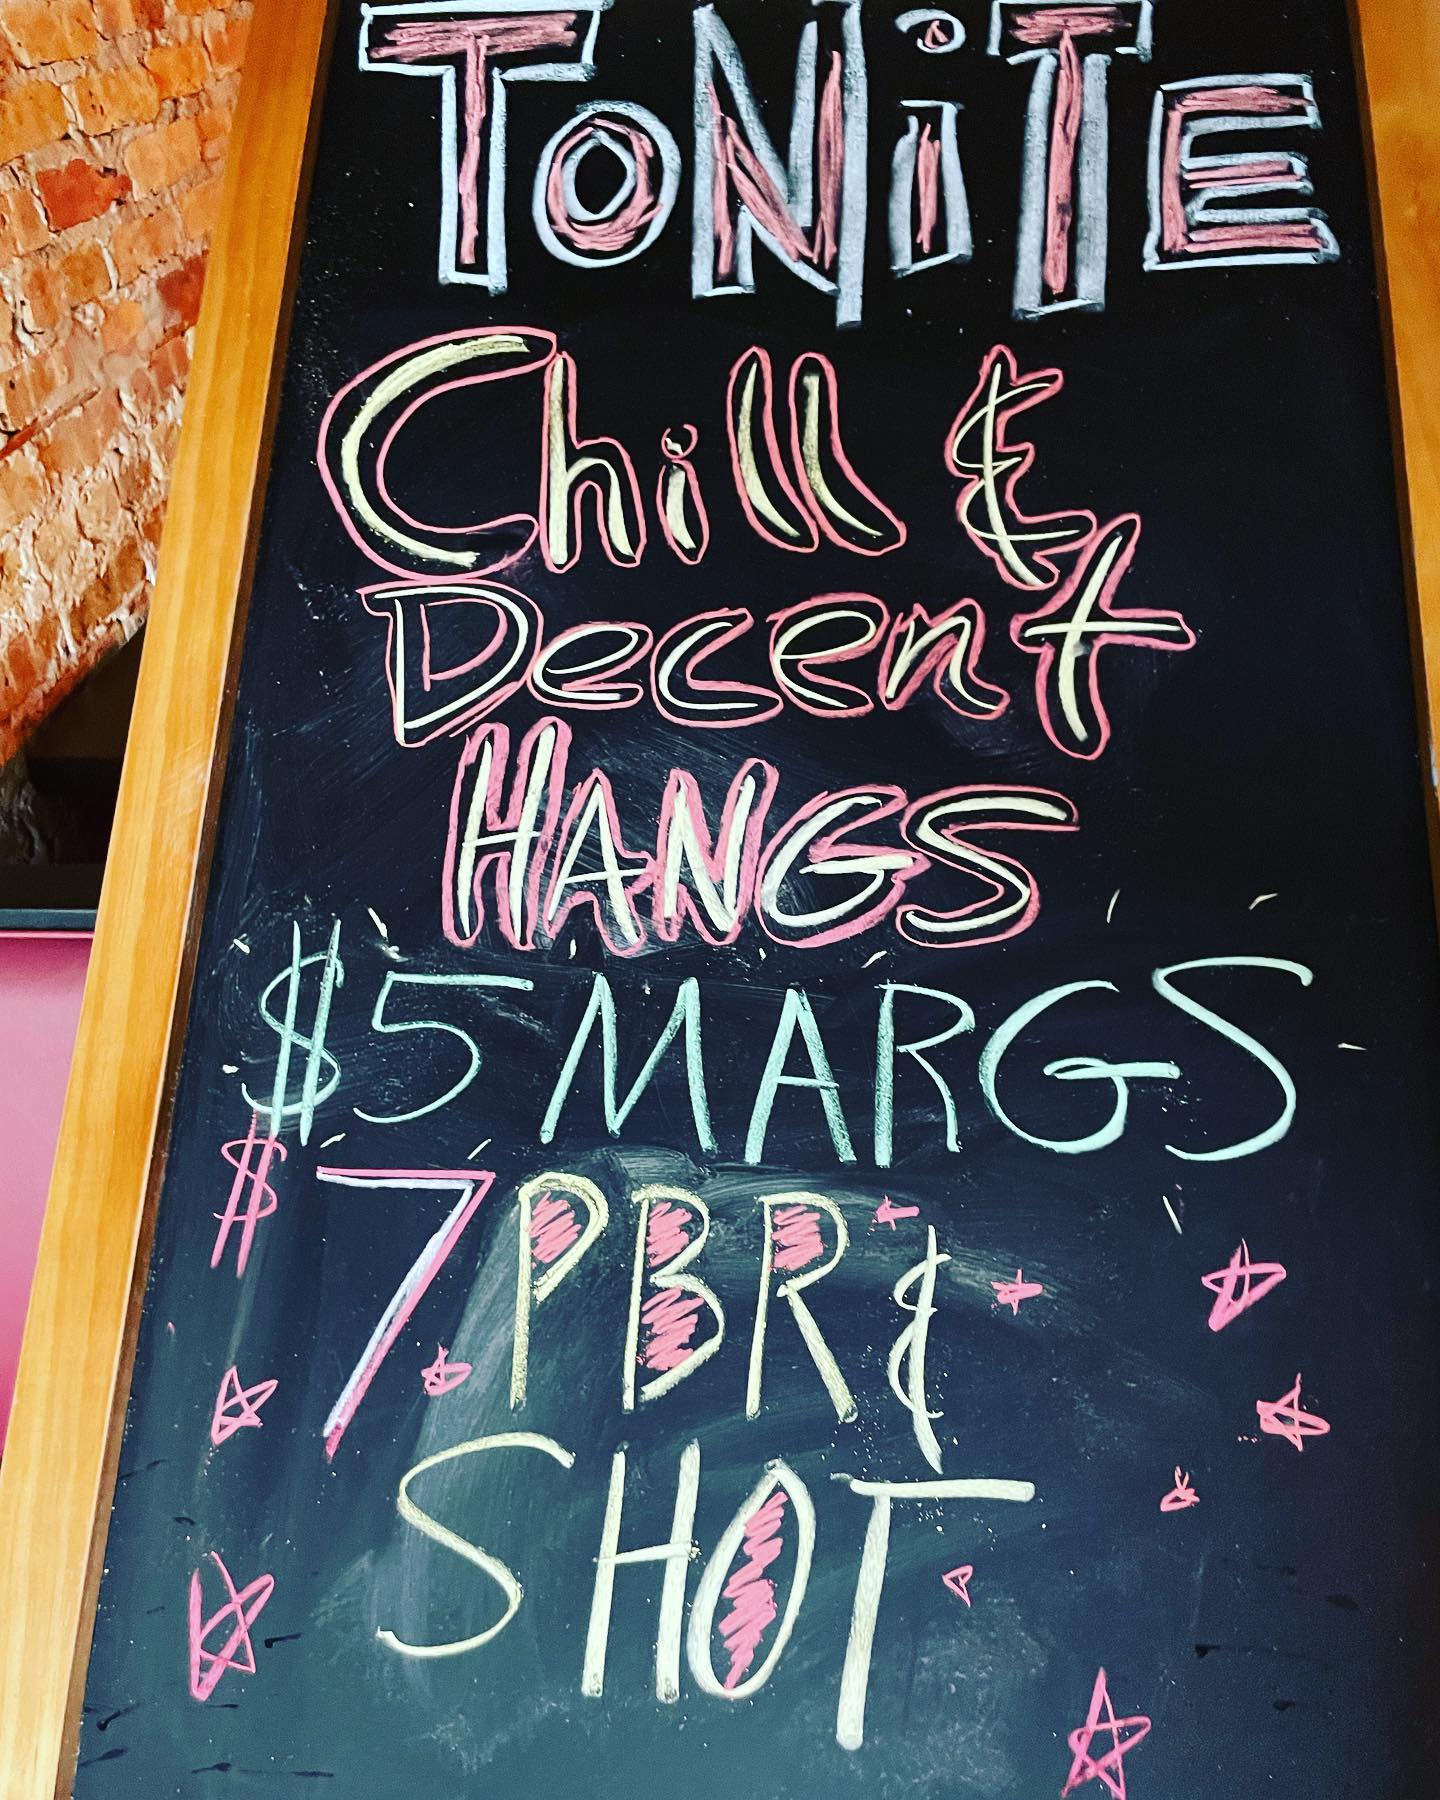 TONiTE
Chill &
Decent
HANGS
$5 MARGS
$7 PBR &
SHOT